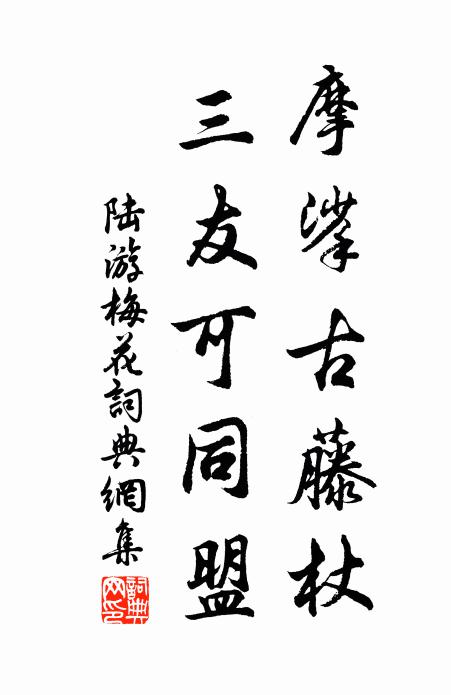 摩挲古藤杖
三友可同盟
陆游梅花詞典網集
詞典网印